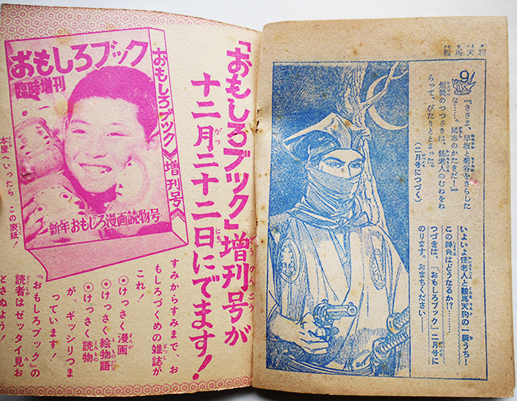 鞍馬天狗
9
「きさま、早苗と菊谷をさらした
な……。同志のかたきだ！」
短銃のつつさきは、怪老人のむねをね
らって、ぴたりととまった。
（二月号につづく）
いよいよ怪老人と鞍馬天狗の一騎うち！
この勝負はどうなるか!?……
つづきは、「おもしろブック」二月号に
のります。おまちください！
「おもしろブック」増刊号が
十二月二十二日にでます！
おもしろブック
臨時増刊
おもしろブック
増刊号
新年おもしろ漫画読物号
本屋へいったら、この表紙！
すみからすみまで、お
もしろづくめの雑誌が
これ！
◎けっさく漫画
◎けっさく絵物語
◎けっさく読物
が、ギッシリつま
っています！
「おもしろブック」の
読者はゼッタイ見お
とさぬよう！